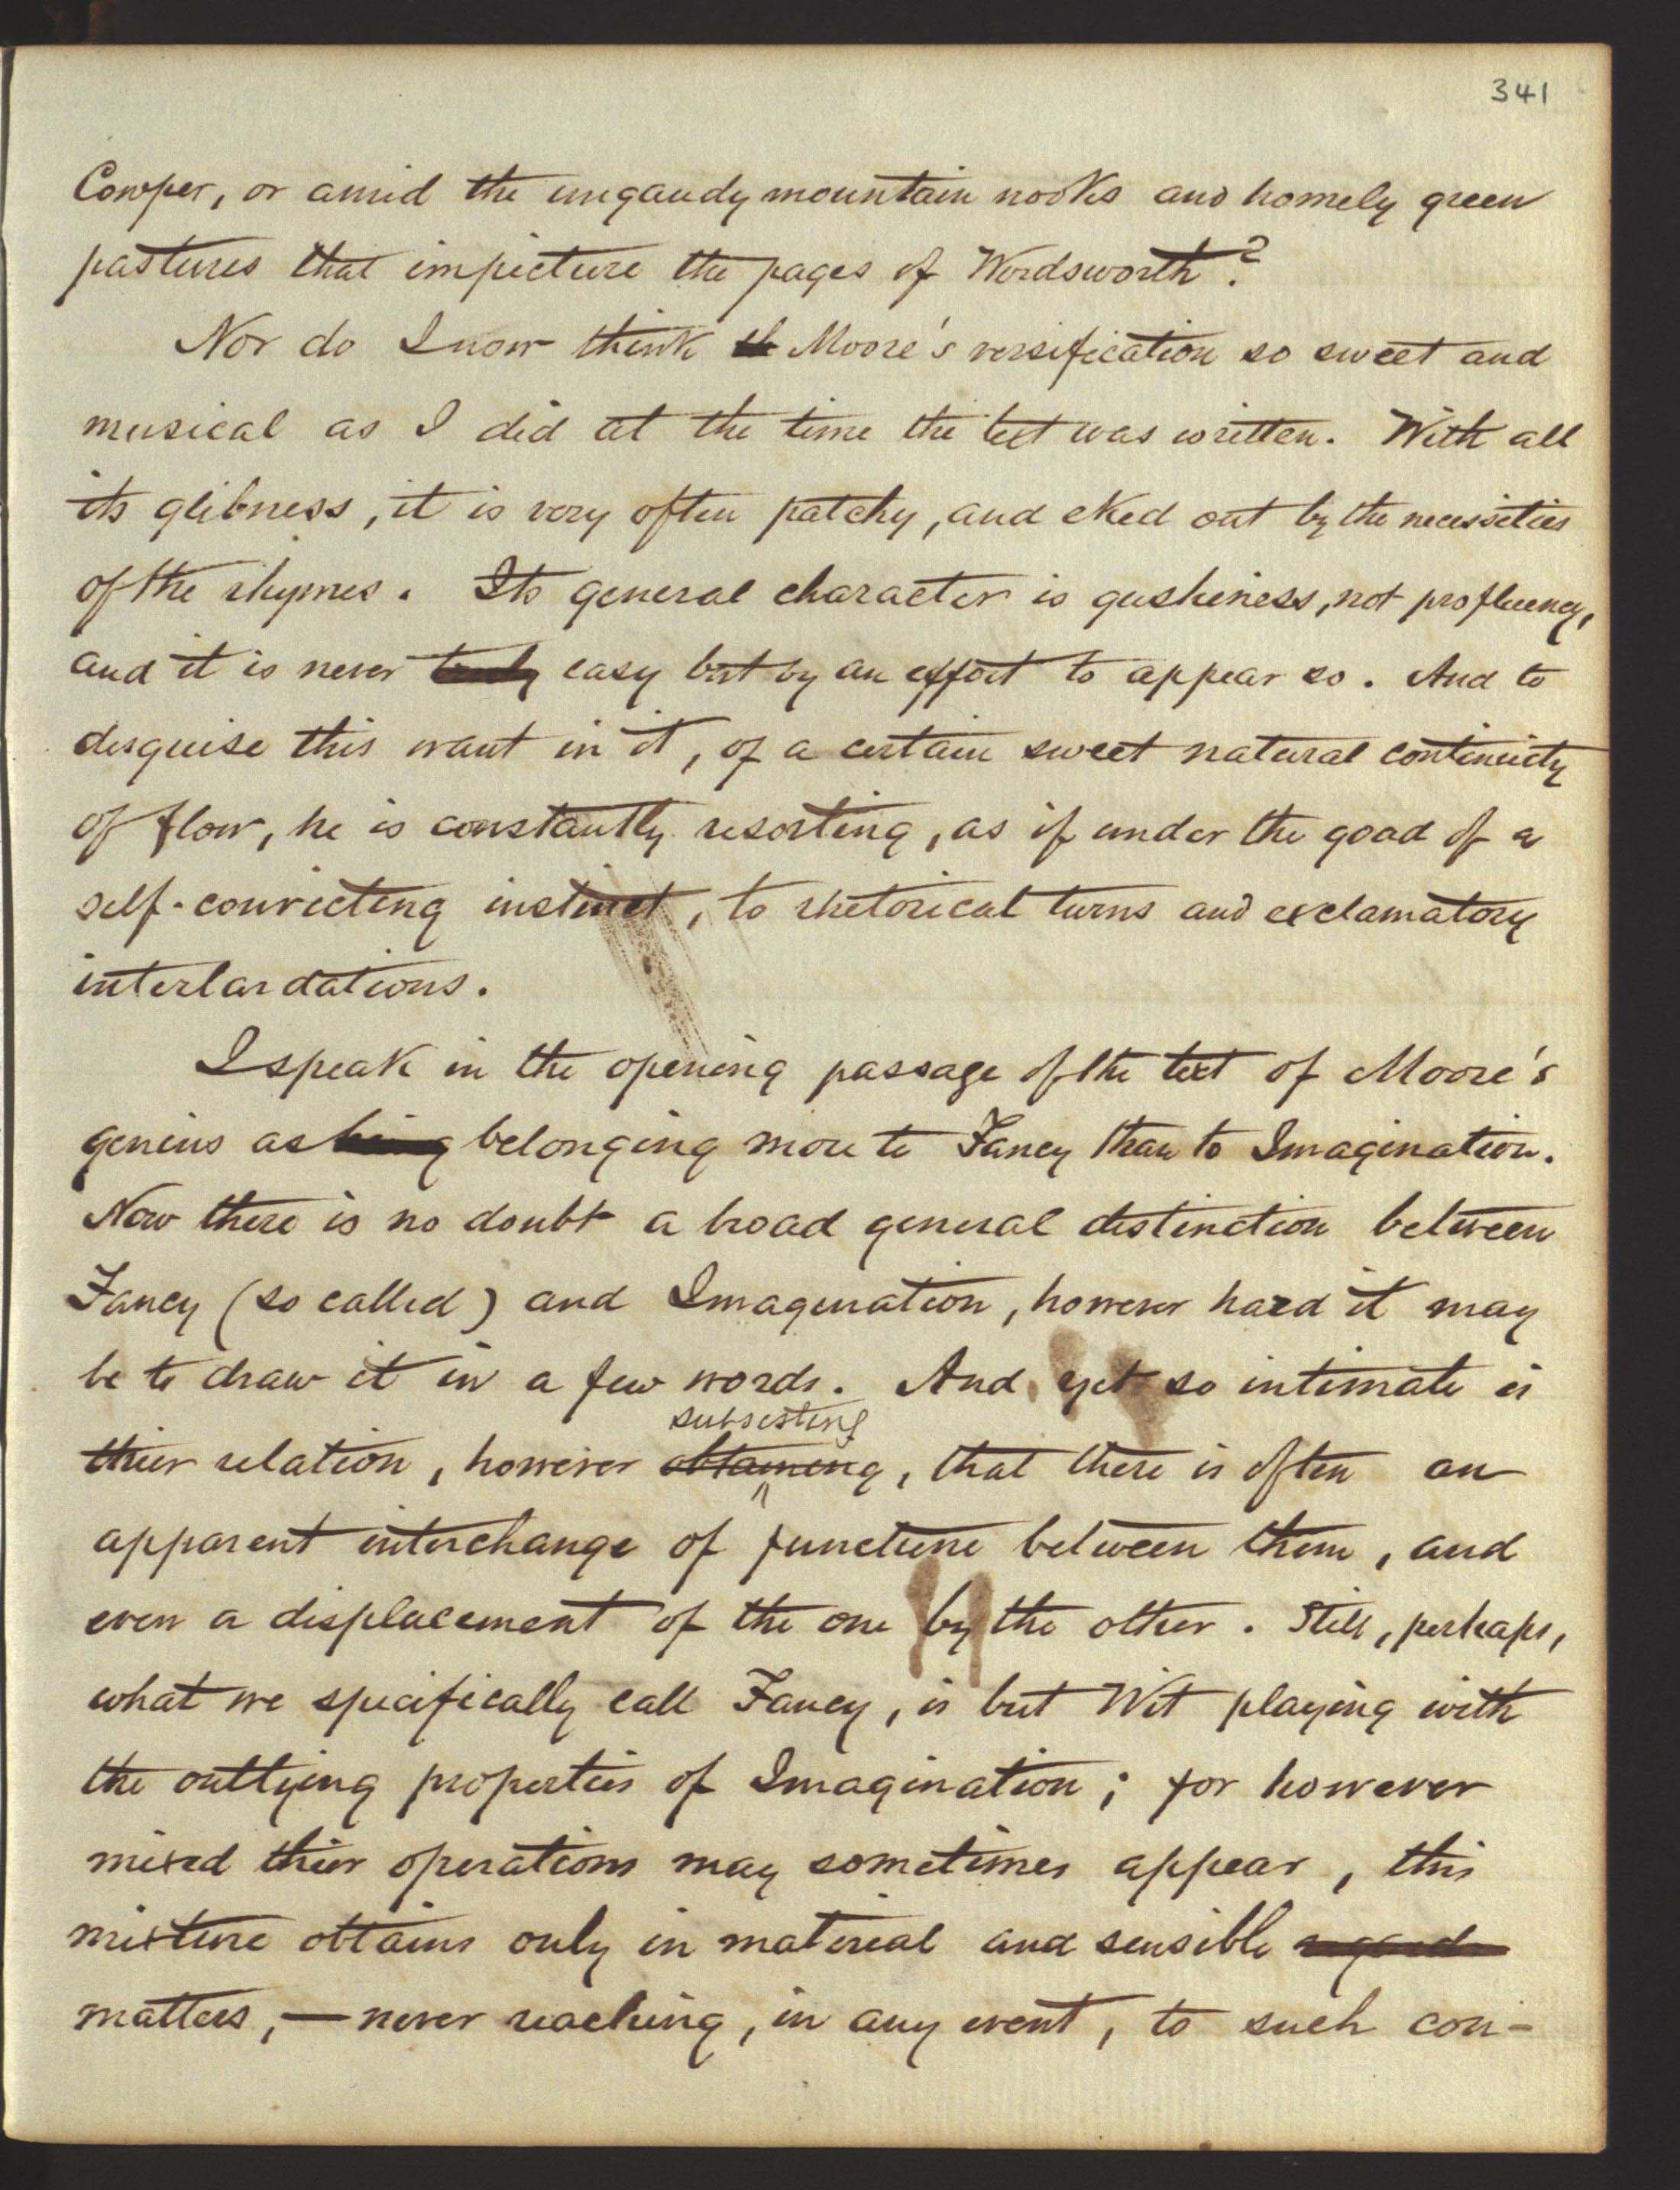 341
Cowper, or amid the ungaudy mountain nooks and homely green
pastures that impicture the pages of Wordsworth?
Nor do I now think Moore's versification so sweet and
musical as I did at the time the text was written. With all
its glibness, it is very often patchy, and eked out by the necessities
of the rhymes. Its general character is gushiness, not profluency,
and it is never truly easy but by an effort to appear so. And to
disguise this want in it, of a certain sweet natural continuity
of flow, he is constantly resorting, as if under the goad of a
self-convicting instinct, to rhetorical turns and exclamatory
interlardations.
I speak in the opening passage of the text of Moore's
genius as being belonging more to Fancy than to Imagination.
Now there is no doubt a broad general distinction between
Fancy (so called) and Imagination, however hard it may
be to draw it in a few words. And yet so intimate is
subsisting
their relation, however obtaining, that there is often an
apparent interchange of function between them, and
even a displacement of the one by the other. Still, perhaps,
what we specifically call Fancy, is but Wit playing with
the outlying properties of Imagination; for however
mixed their operations may sometimes appear, this
mixture obtains only in material and sensible
matters,—never reaching, in any event, to such con-